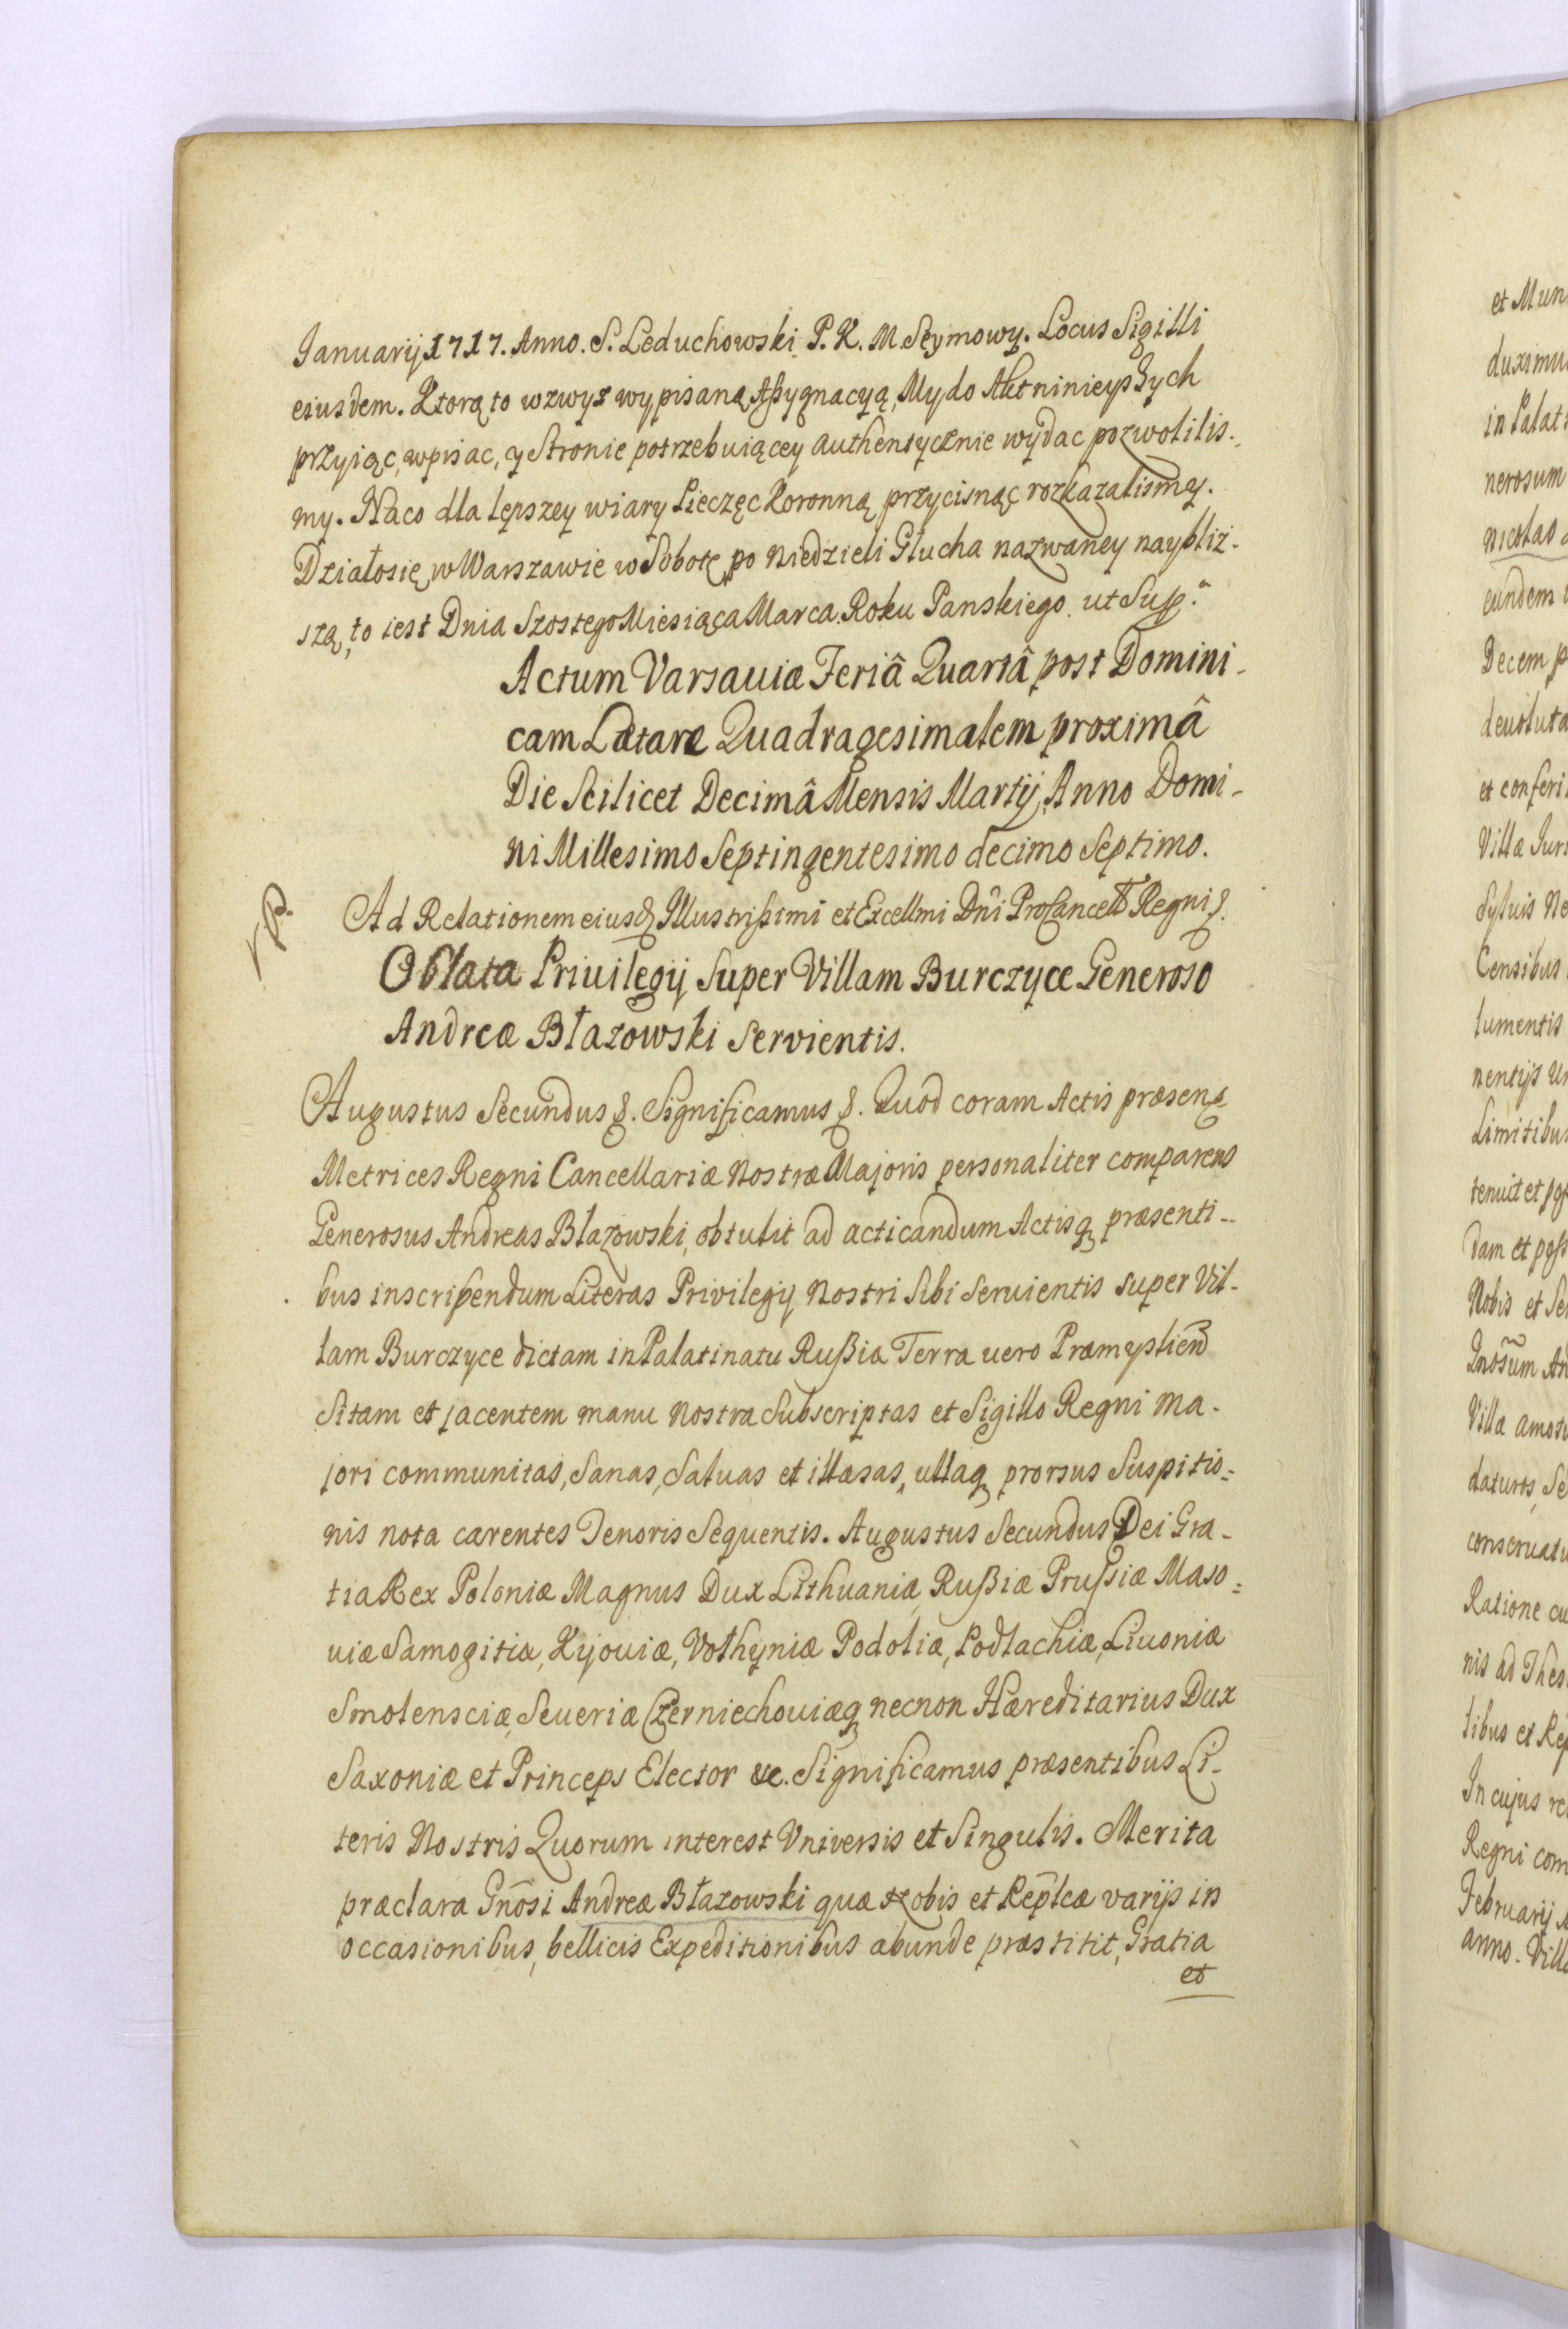 Januarij 1717. Anno. S. Leduchowski P. K. M. Seymowy. Locus Sigilli
eiusdem. Ktorą to wzwyz wypisaną Assygnacyą, My do Akt ninieyszych
przyiąc, wpisac, y Stronie potrzebuiącey authentycznie wydac pozwolilis-
my. Naco dla lepszey wiary Pieczęc Koronną przycisnąc rozkazalismy.
Działosię w Warszawie w Sobotę po Niedzieli Głucha nazwaney naybliz-
szą, to iest Dnia Szostego Miesiąca Marca Roku Panskiego ut Sup.ª
Actum Varsauiæ Feriâ Quartâ post Domini-
cam Lætare Quadragesimalem proximâ
Die Scilicet Decimâ Mensis Martij, Anno Domi-
ni Millesimo Septingentesimo decimo Septimo.
Ad Relationem eiusd Illustrissimi et Excellmi Dni ProCancell Regni &.
Oblata Priuilegij Super Villam Burczyce Generoso
Andreæ Błazowski Servientis.
Augustus Secundus &. Significamus &. Quod coram Actis præsen
Metrices Regni Cancellariæ Nostræ Majoris personaliter comparens
Generosus Andreas Błazowski, obtulit ad acticandum Actisq præsenti-
bus inscribendum Literas Privilegij Nostri Sibi Seruientis super Vil-
lam Burczyce dictam in Palatinatu Russiæ Terra uero Præmyslien
Sitam et jacentem manu Nostra Subscriptas et Sigillo Regni Ma-
jori communitas, Sanas, Saluas et illæsas, ullaq prorsus Suspitio-
nis nota carentes Tenoris Sequentis. Augustus Secundus Dei Gra-
tia Rex Poloniæ Magnus Dux Lithuaniæ, Russiæ Prussiæ Maso-
uiæ Samogitiæ, Kijouiæ, Volhyniæ Podoliæ, Podlachiæ, Liuoniæ
Smolensciæ, Seueriæ Czerniechouiæq necnon Hæreditarius Dux
Saxoniæ et Princeps Elector &c. Significamus præsentibus Li-
teris Nostris Quorum interest Vniversis et Singulis. Merita
præclara Gnosi Andreæ Błazowski quæ Nobis et Reptcæ varijs in
occasionibus, bellicis Expeditionibus abunde præstitit, Gratia
et
et Mun
duximu
in Palat
nerosum
nicolao
eundem
Decem
deuoluta
et conferi
Villæ Juri
Syluis Ne
Censibus
lumentis
nentijs
Limitibus
tenuit et
dam et poss
Nobis et Se
Gnosum An
Villa
daturos, Se
conseruatu
Ratione cu
nis ad Thes
libus et Rep
In cujus re
Regni com
Februarij
anno. Villa